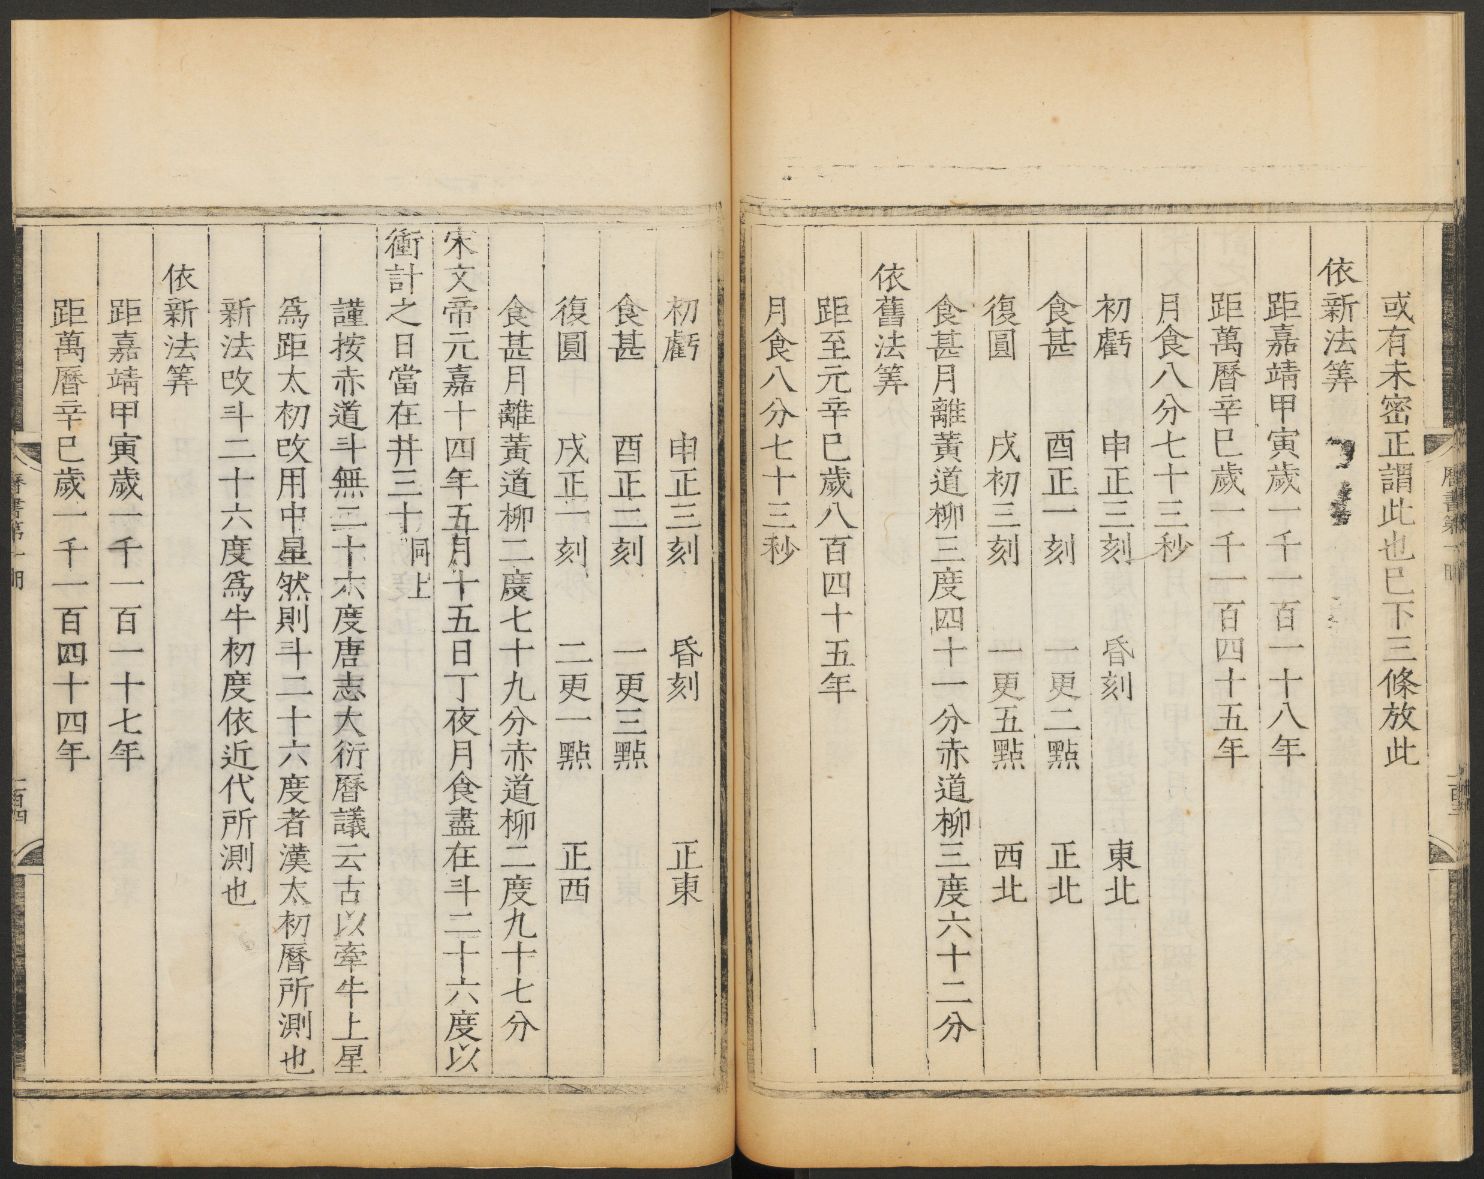 或有未密正謂此也已下三條放此
依新法筭
距嘉靖甲寅歲一千一百一十八年
距萬曆辛巳歲一千一百四十五年
月食八分七十三秒
初虧 申正三刻 昏刻 東北
食甚 酉正一刻 一更二點 正北
復圓 戌初三刻 一更五點 西北
食甚月離黃道柳三度四十一分赤道柳三度六十二分
依舊法筭
距至元辛巳歲八百四十五年
月食八分七十三秒
初虧 申正三刻 昏刻 正東
食甚 酉正二刻 一更三點
復圓 戌正一刻 二更一點 正西
食甚月離黃道柳二度七十九分赤道柳二度九十七分
宋文帝元嘉十四年五月十五日丁夜月食盡在斗二十六度以
衝計之日當在井三十同上
謹按赤道斗無二十六度唐志大衍曆議云古以牽牛上星
爲距太初改用中星然則斗二十六度者漢太初曆所測也
新法改斗二十六度爲牛初度依近代所測也
依新法筭
距嘉靖甲寅歲一千一百一十七年
距萬曆辛巳歲一千一百四十四年
曆書第一冊
一百四